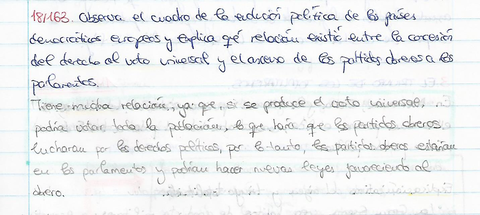 18/163. Observa el cuadro de la evolución política de los países
democráticos europeos y explica qé relación existió entre la concesión
del derecho al voto universal y el acceso de los partidos obreros a los
parlamentos.
Tiene mucha relación, ya que, si se produce el voto universal,
podría votar toda la población, lo que haría que los partidos obreros
lucharan por los derechos políticos, por lo tanto, los partidos obreros estarían
en los parlamentos y podrían hacer nuevas leyes favoreciendo al
obrero.